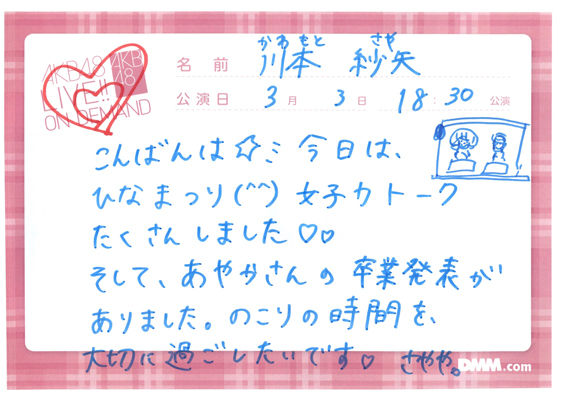 AKB48
LIVE!!
ON DEMAND
AKB
48
かわもと さや
名前 川本 紗矢
公演日 3月 3日 18:30 公演
こんばんは☆ミ 今日は、
ひなまつり(^^) 女子力トーク
たくさんしました♡♡
そして、あやかさんの卒業発表が
ありました。のこりの時間を、
大切に過ごしたいです♡ さやや。
DMM.com